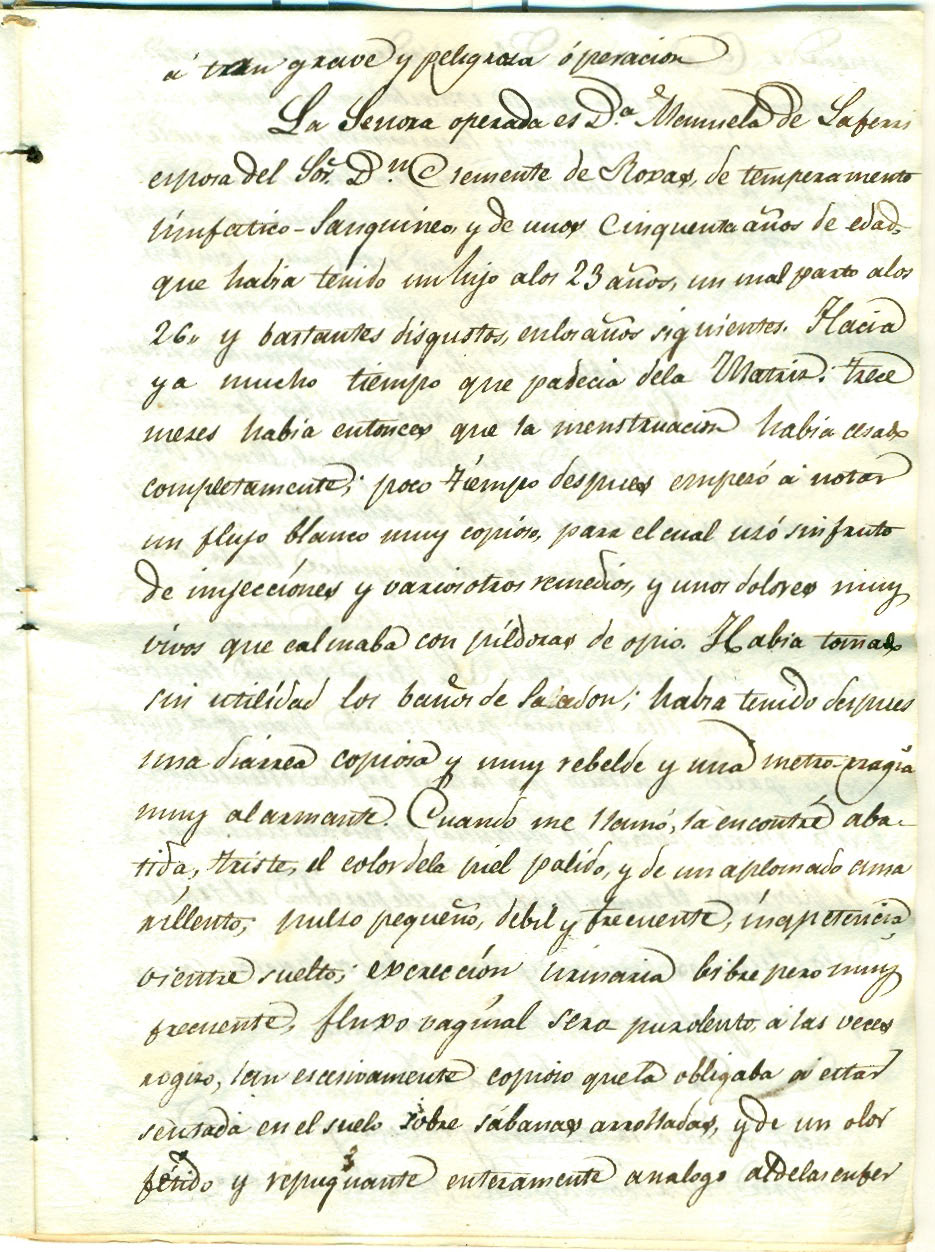 á tan grave y peligrosa óperacion
La Señora operada es D.ª Manuela de Laferri
esposa del Sór. D.n Clemente de Roxas, de temperamento
linfatico-Sanguineo, y de unos Cinquenta años de edad,
que habia tenido un hijo alos 23 años, un mal parto alos
26,, y bastantes disgustos, enlos años siguientes. Hacia
ya mucho tiempo que padecia dela Matriz: trece
meses habia entonces que la menstruacion habia cesado
completamente; poco tiempo despues empezó á notar
un flujo blanco muy copioso, para el cual usó sin fruto
de inyecciónes y varios otros remedios, y unos dolores muy
vivos que calmaba con píldoras de opio. Habia tomado
sin utilidad los baños de Sacedon; habia tenido despues
una diarrea copiosa y muy rebelde y una metro-rragia
muy alarmante. Cuando me llamó, la encontré aba-
tida, triste, el color dela piel palido, y de un aplomado ama
rillento, pulso pequeño, debil y frecuente, inapetencia,
vientre suelto; excrección urinaria libre pero muy
frecuente, fluxo vaginal sero purolento, á las veces
rogizo, tan escesivamente copioso quela obligaba á estar
sentada en el suelo sobre sábanas arrolladas, y de un olor
fétido y repugnante enteramente analogo al delas enfer